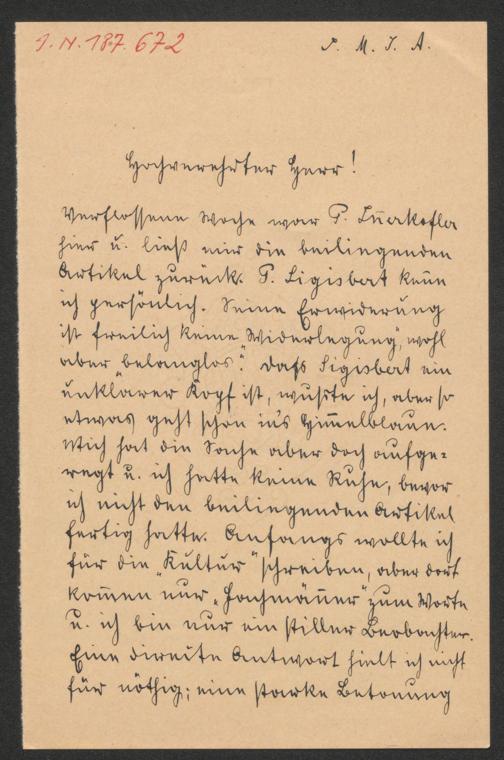 J.N. 187.672
P. M. J. A.
Hochverehrter Herr!
Verflossene Woche war P. Iñerkofler
hier u. ließ mir die beiliegenden
Artikel zurück. P. Sigisbert kenne
ich persönlich. Seine Erwiderung
ist freilich keine „Widerlegung", wohl
aber „belanglos". Dass Sigisbert ein
unklarer Kopf ist, wußte ich, aber so
etwas geht schon in's Himmelblaue.
Mich hat die Sache aber doch aufge=
regt u. ich hatte keine Ruhe, bevor
ich nicht den beiliegenden Artikel
fertig hatte. Anfangs wollte ich
für die „Kultur" schreiben, aber dort
kom̄en nur „Fachmän̄er" zum Worte
u. ich bin nur ein stiller Beobachter.
Eine direkte Antwort hielt ich nicht
für nöthig; eine starke Betonung